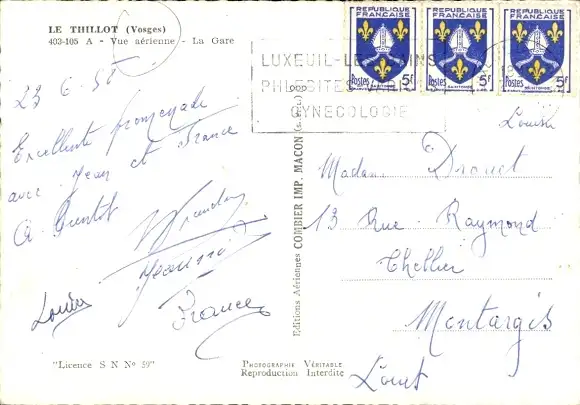 LE THILLOT (Vosges)
403-105 A - Vue aérienne - La Gare
23 6
Excellente promenade
avec Jean et France
A Bientôt
Jeannine
Louise
France
"Licence S N Nº 59"
PHOTOGRAPHIE VÉRITABLE
Reproduction Interdite
Editions Aériennes COMBIER IMP. MACON
REPUBLIQUE FRANÇAISE
Postes 5f
SAINTONGE
REPUBLIQUE FRANÇAISE
Postes 5f
SAINTONGE
REPUBLIQUE FRANÇAISE
Postes 5f
SAINTONGE
LUXEUIL-LES-BAINS
PHLEBITES
GYNECOLOGIE
Madame Drouet
13 Rue Raymond
Thellier
Montargis
Loiret